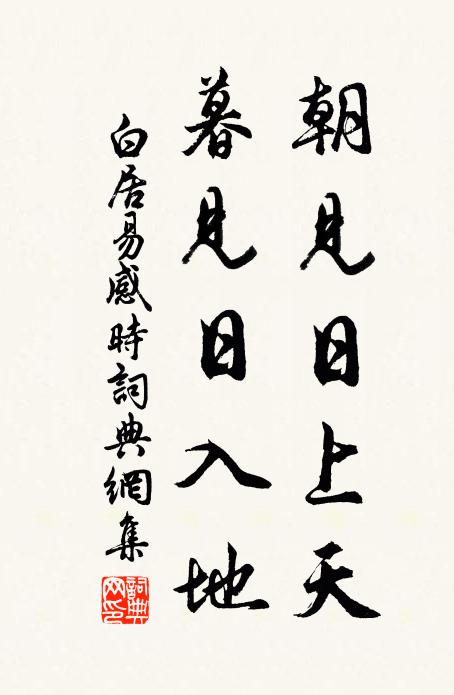 朝見日上天
暮見日入地
白居易感時詞典網集
詞典網印